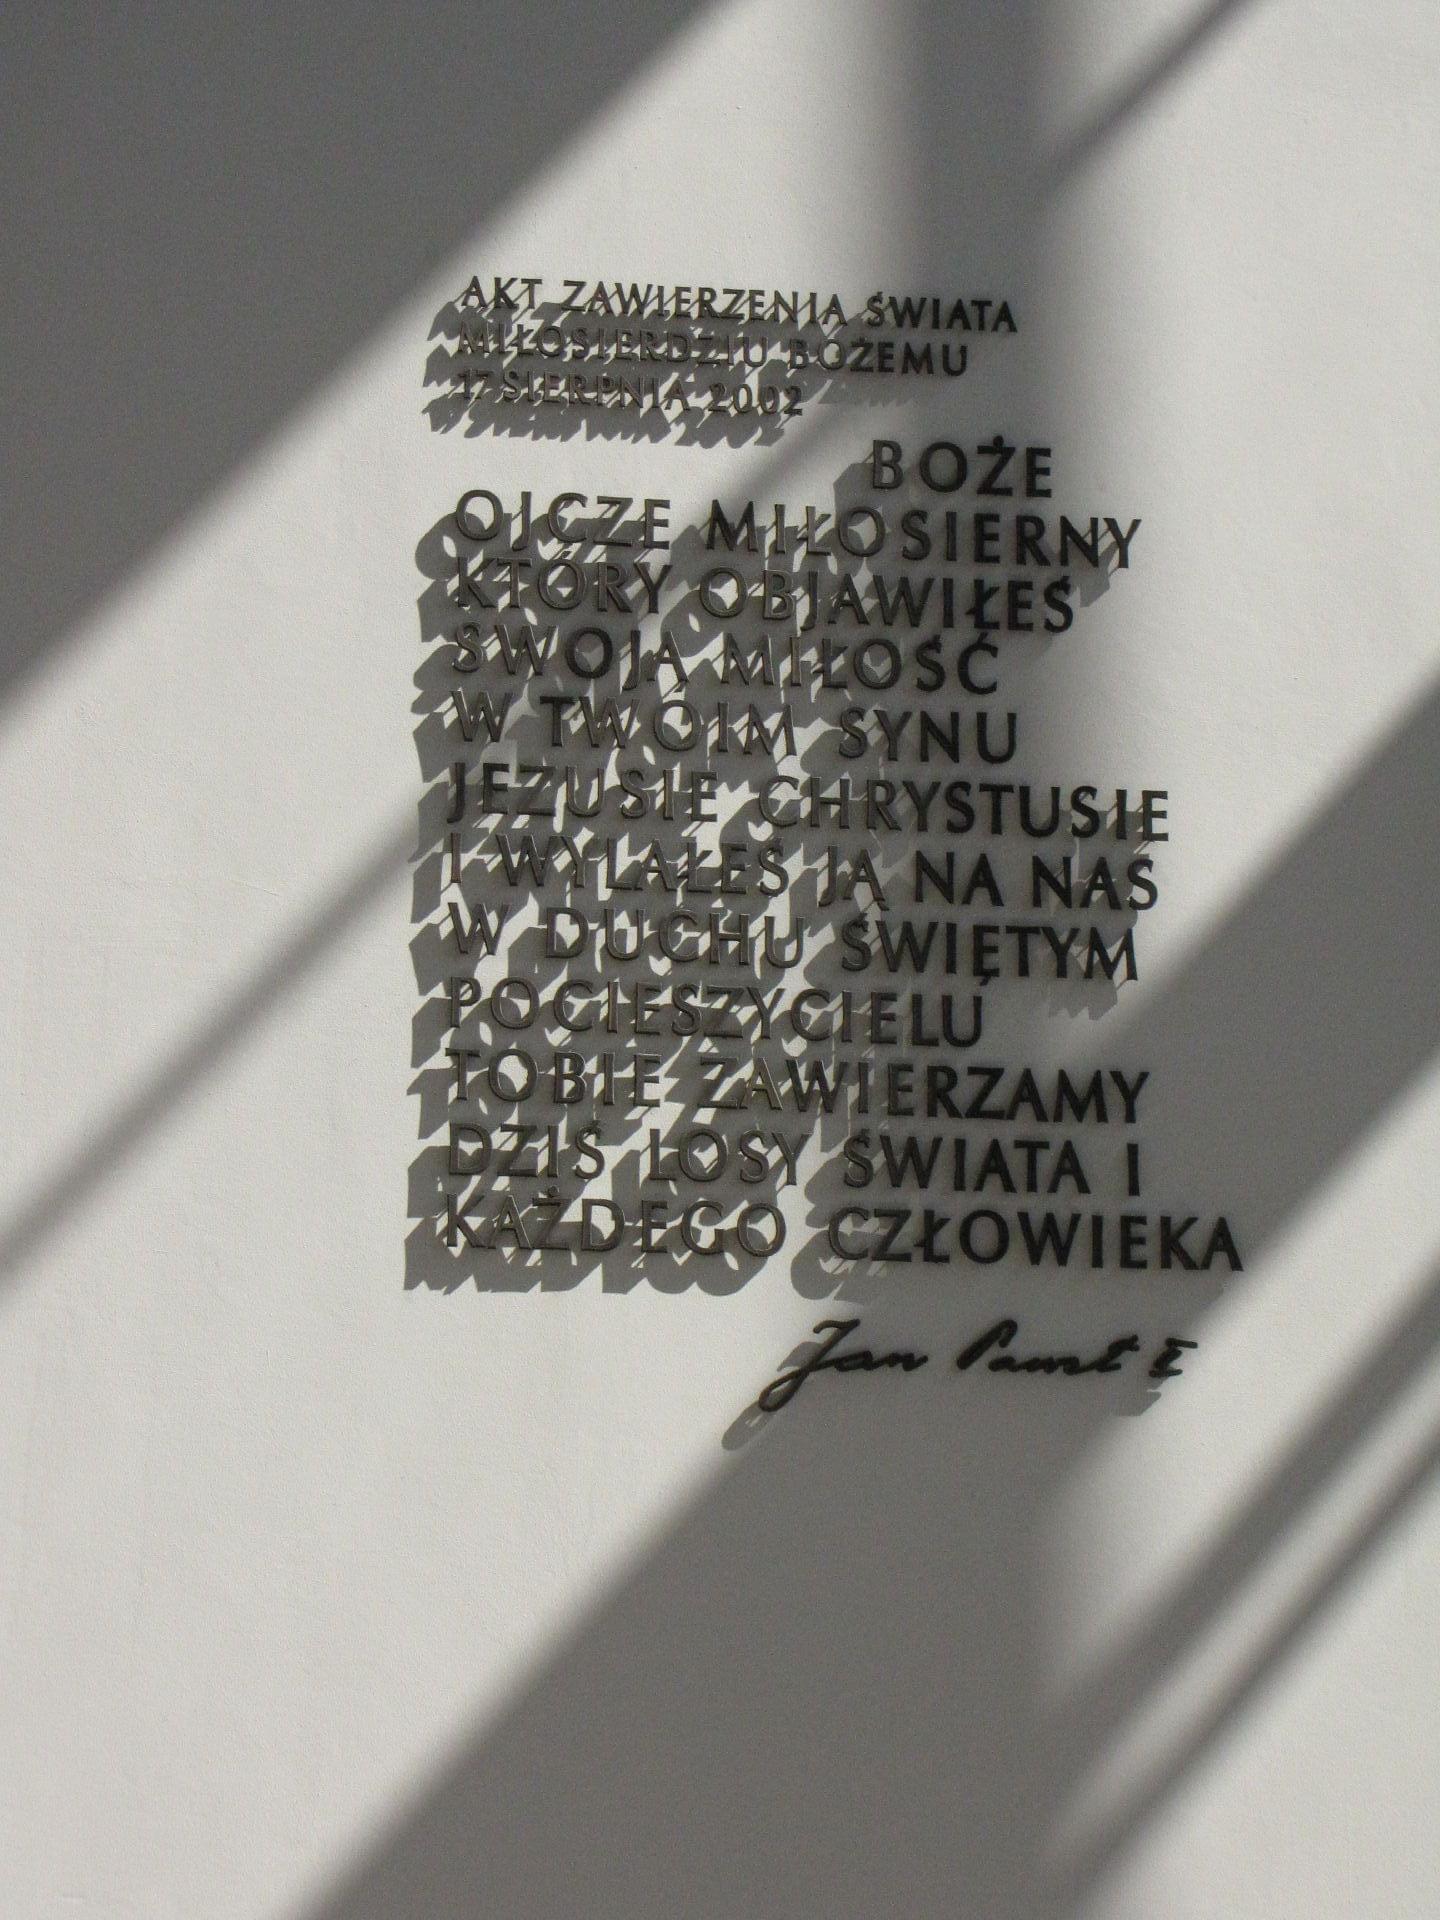 AKT ZAWIERZENIA ŚWIATA
MIŁOSIERDZIU BOŻEMU
17 SIERPNIA 2002
BOŻE
OJCZE MIŁOSIERNY
KTÓRY OBJAWIŁEŚ
SWOJĄ MIŁOŚĆ
W TWOIM SYNU
JEZUSIE CHRYSTUSIE
I WYLAŁEŚ JĄ NA NAS
W DUCHU ŚWIĘTYM
POCIESZYCIELU
TOBIE ZAWIERZAMY
DZIŚ LOSY ŚWIATA I
KAŻDEGO CZŁOWIEKA
Jan Paweł II